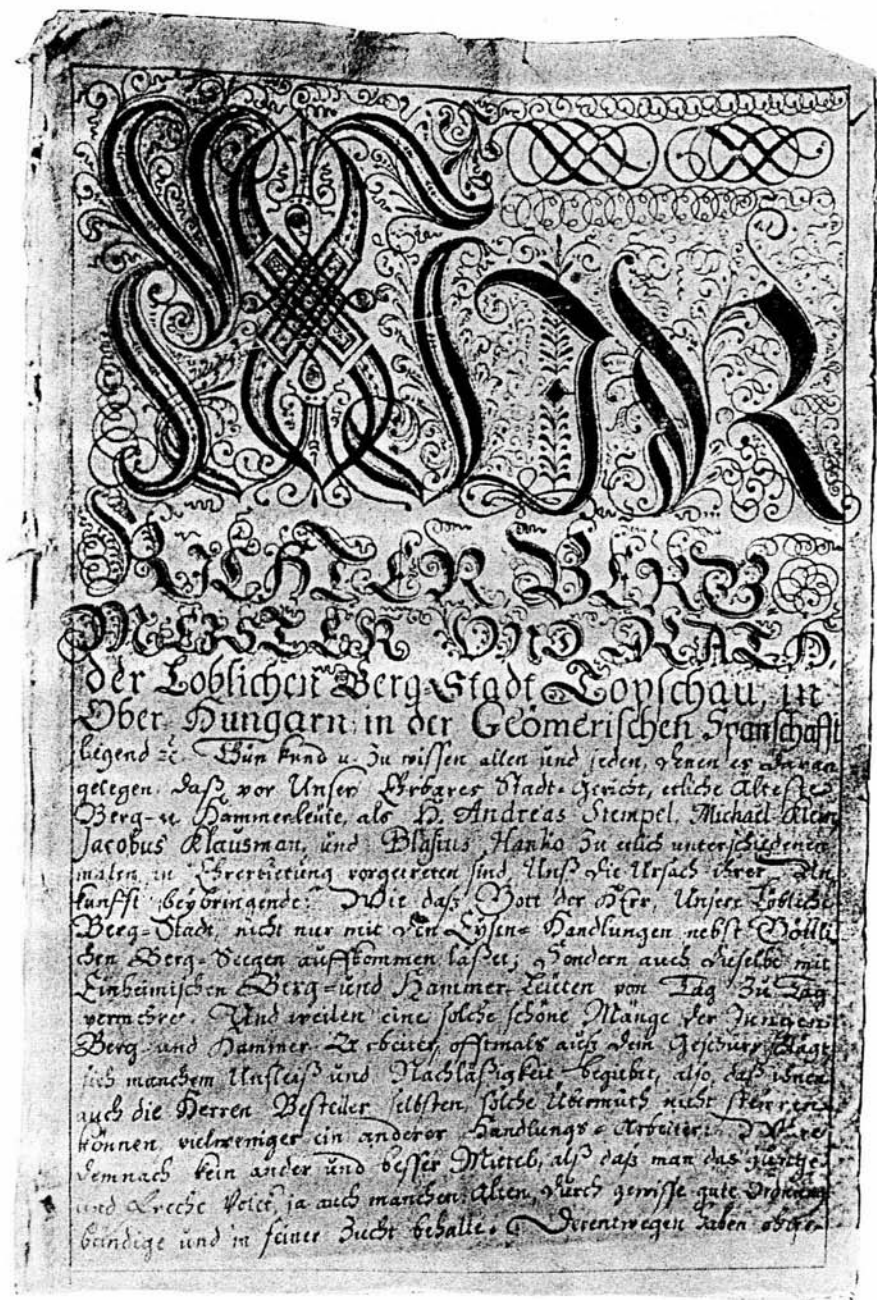 WIR
RICHTER BERG
MEISTER VND RATH,
der Loblichen Berg-Stadt Topschau, in
Ober-Hungarn in der Geömerischen Spanschafft
liegend ꝛc. Thun kund u. zu wissen allen und jeden, denen es daran
gelegen, daß vor Unser Ehrbares Stadt-Gericht, etliche Älteste
Berg- u. Hammerleute, als H. Andreas Stempel, Michael Klein,
Jacobus Klausman, und Blasius Hanko zu etlich unterschiedenen
malen, in Ehrerbietung vorgetreten sind, Unß die Ursach ihrer An
kunfft beybringende: Wie daß Gott der HErr, Unsere Löbliche
Berg-Stadt, nicht nur mit den Eysen-Handlungen nebst Göttli
chen Berg-Seegen auffkommen laßet; Sondern auch dieselbe mit
Einheimischen Berg- und Hammer-Leuten von Tag zu Tag
vermehre. Und weilen eine solche schöne Mänge der Jungen
Berg und Hammer-Arbeiter, offtmals auß dem Geschürr schlägt
sich manchem Unfleiß und Nachläßigkeit begiebet, also, daß ihnen
auch die Herren Besteller selbsten, solche Übermuth nicht steüren
können, vielweniger ein anderer Handlungs-Arbeiter: Wäre
demnach kein ander und besser Mittel, alß daß man das junge
und freche Volck, ja auch manchen Alten, durch gewisse gute Ordnung
bändige und in seiner Zucht behalte. Derentwegen haben